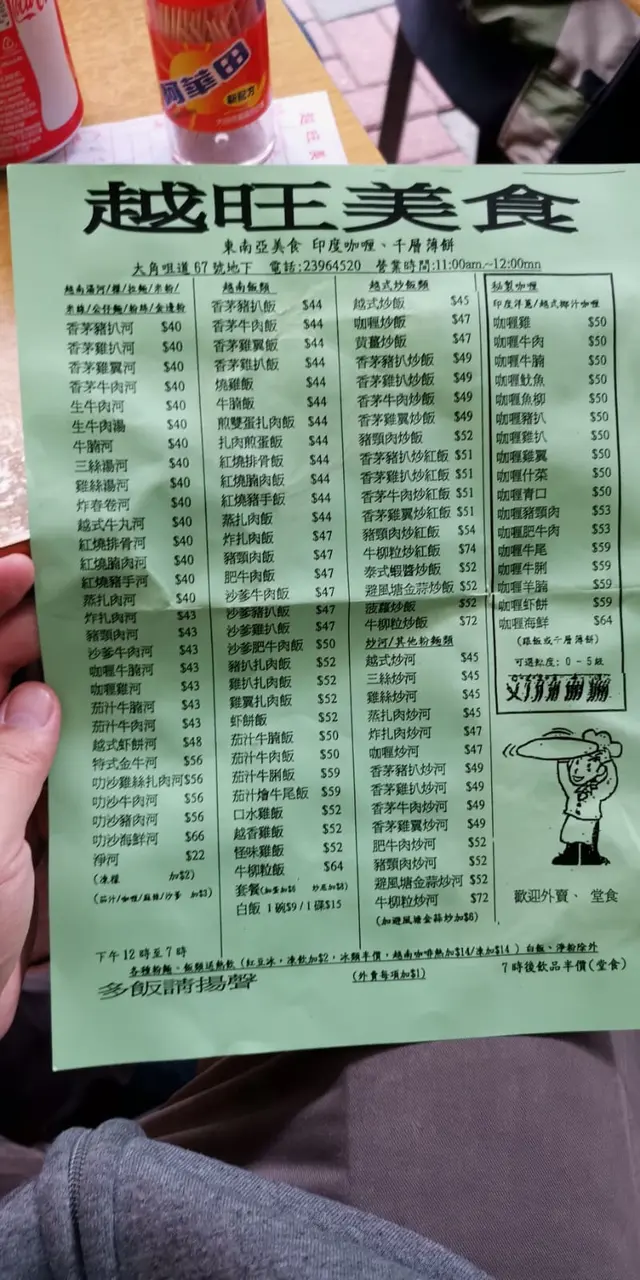 阿華田
新配方
越旺美食
東南亞美食 印度咖喱、千層薄餅
大角咀道67號地下 電話:23964520 營業時間:11:00am.~12:00mn
越南湯河/檬/拉麵/米粉/
米線/公仔麵/粉絲/金邊粉
香茅豬扒河 $40
香茅雞扒河 $40
香茅雞翼河 $40
香茅牛肉河 $40
生牛肉河 $40
生牛肉湯 $40
牛腩河 $40
三絲湯河 $40
雞絲湯河 $40
炸春卷河 $40
越式牛丸河 $40
紅燒排骨河 $40
紅燒腩肉河 $40
紅燒豬手河 $40
蒸扎肉河 $40
炸扎肉河 $43
豬頸肉河 $43
沙爹牛肉河 $43
咖喱牛腩河 $43
咖喱雞河 $43
茄汁牛腩河 $43
茄汁牛肉河 $43
越式虾餅河 $48
特式金牛河 $56
叻沙雞絲扎肉河 $56
叻沙牛肉河 $56
叻沙豬肉河 $56
叻沙海鮮河 $66
淨河 $22
(凍檬 加$2)
(茄汁/咖喱/麻辣/沙爹 加$3)
越南飯類
香茅豬扒飯 $44
香茅牛肉飯 $44
香茅雞翼飯 $44
香茅雞扒飯 $44
燒雞飯 $44
牛腩飯 $44
煎雙蛋扎肉飯 $44
扎肉煎蛋飯 $44
紅燒排骨飯 $44
紅燒腩肉飯 $44
紅燒豬手飯 $44
蒸扎肉飯 $44
炸扎肉飯 $47
豬頸肉飯 $47
肥牛肉飯 $47
沙爹牛肉飯 $47
沙爹豬扒飯 $47
沙爹雞扒飯 $47
沙爹肥牛肉飯 $50
豬扒扎肉飯 $52
雞扒扎肉飯 $52
雞翼扎肉飯 $52
虾餅飯 $52
茄汁牛腩飯 $50
茄汁牛肉飯 $50
茄汁牛脷飯 $59
茄汁燴牛尾飯 $59
口水雞飯 $52
越香雞飯 $52
怪味雞飯 $52
牛柳粒飯 $64
套餐
白飯 1碗$9/1碟$15
越式炒飯類
越式炒飯 $45
咖喱炒飯 $47
黃薑炒飯 $47
香茅豬扒炒飯 $49
香茅雞扒炒飯 $49
香茅牛肉炒飯 $49
香茅雞翼炒飯 $49
豬頸肉炒飯 $52
香茅豬扒炒紅飯 $51
香茅雞扒炒紅飯 $51
香茅牛肉炒紅飯 $51
香茅雞翼炒紅飯 $51
豬頸肉炒紅飯 $54
牛柳粒炒紅飯 $74
泰式蝦醬炒飯 $52
避風塘金蒜炒飯 $52
菠蘿炒飯 $52
牛柳粒炒飯 $72
炒河/其他粉麵類
越式炒河 $45
三絲炒河 $45
雞絲炒河 $45
蒸扎肉炒河 $45
炸扎肉炒河 $47
咖喱炒河 $47
香茅豬扒炒河 $49
香茅雞扒炒河 $49
香茅牛肉炒河 $49
香茅雞翼炒河 $49
肥牛肉炒河 $52
豬頸肉炒河 $52
避風塘金蒜炒河 $52
牛柳粒炒河 $72
(加避風塘金蒜炒加$6)
秘製咖喱
印度洋蔥/越式椰汁咖喱
咖喱雞 $50
咖喱牛肉 $50
咖喱牛腩 $50
咖喱魷魚 $50
咖喱魚柳 $50
咖喱豬扒 $50
咖喱雞扒 $50
咖喱雞翼 $50
咖喱什菜 $50
咖喱青口 $50
咖喱豬頸肉 $53
咖喱肥牛肉 $53
咖喱牛尾 $59
咖喱牛脷 $59
咖喱羊腩 $59
咖喱虾餅 $59
咖喱海鮮 $64
(跟飯或千層薄餅)
可選辣度: 0-5級
歡迎外賣、堂食
下午12時至7時
各種粉麵、飯類送熱飲(紅豆冰,凍飲加$2,冰類半價,越南咖啡熱加$14/凍加$14) 白飯、淨粉除外
多飯請揚聲 (外賣每項加$1) 7時後飲品半價(堂食)